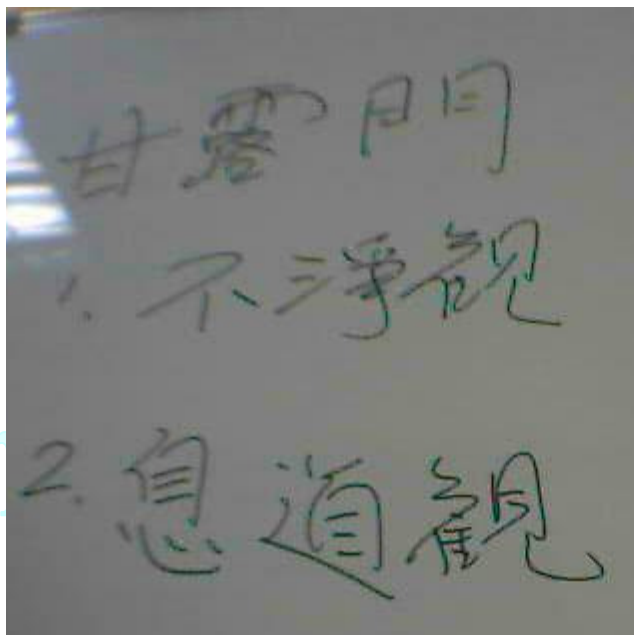 甘露門
1. 不淨観
2. 息道観